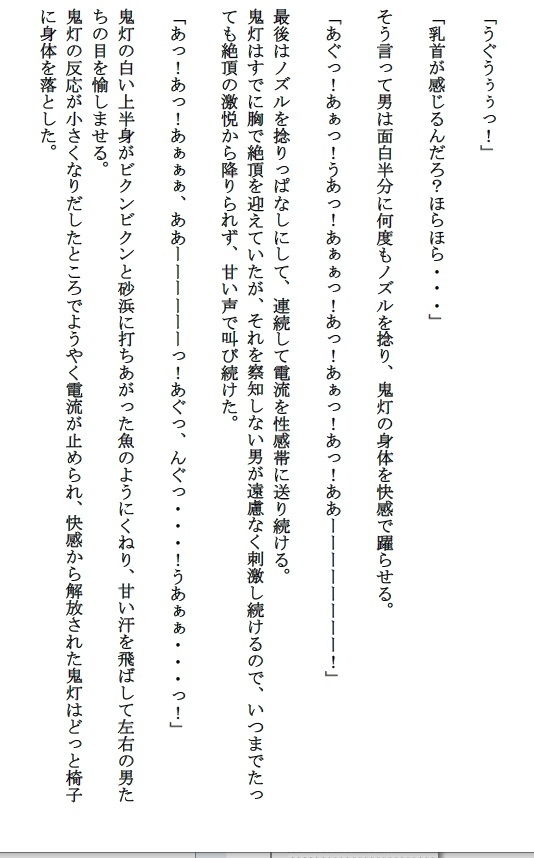 「うぐうぅぅっ！」
「乳首が感じるんだろ？ほらほら・・・」
そう言って男は面白半分に何度もノズルを捻り、鬼灯の身体を快感で躍らせる。
「あぐっ！あぁっ！うあっ！あぁぁっ！あっ！あぁっ！あっ！ああ――――――――！」
最後はノズルを捻りっぱなしにして、連続して電流を性感帯に送り続ける。
鬼灯はすでに胸で絶頂を迎えていたが、それを察知しない男が遠慮なく刺激し続けるので、いつまでたっ
ても絶頂の激悦から降りられず、甘い声で叫び続けた。
「あっ！あっ！あぁぁぁ、ああ――――――っ！あぐっ、んぐっ・・・！うあぁぁ・・・っ！」
鬼灯の白い上半身がビクンビクンと砂浜に打ちあがった魚のようにくねり、甘い汗を飛ばして左右の男た
ちの目を愉しませる。
鬼灯の反応が小さくなりだしたところでようやく電流が止められ、快感から解放された鬼灯はどっと椅子
に身体を落とした。